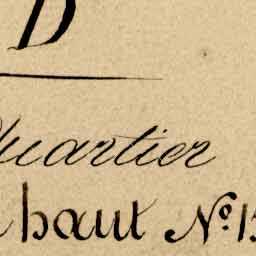 D
Quartier
haut No. 1